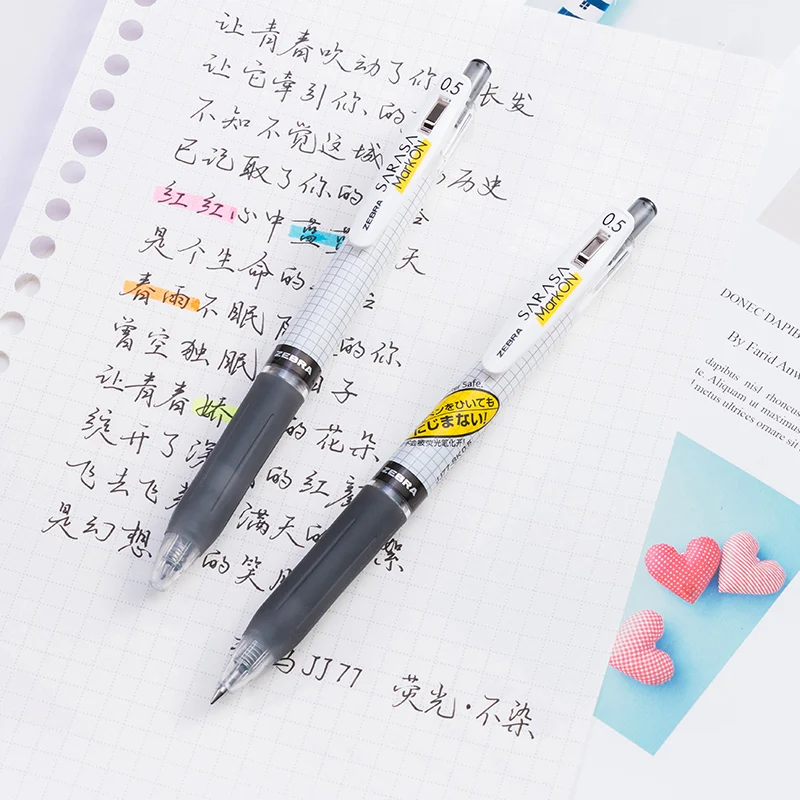 让青春吹动了你 长发
让它牵引你的
不知不觉这城 历史
已记取了你的
红红心中蓝
是个生命的 天
春雨不眠 的你
曾空独眠 日子
让青春娇 的花朵
绽开了深 的红颜
飞去飞 满天的 絮
是幻想 的笑
JJ77
荧光·不染
0.5
SARASA
MarkON
ZEBRA
ZEBRA
0.5
SARASA
MarkON
ZEBRA
safe.
ンをひいても
にじまない!
ZEBRA
DONEC DAPIB
By Farid Anw
dapibus nisl rhoncus
te. Aliquam ut maximus
metus ultrices ornare sit